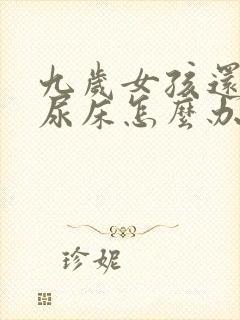 九歲女孩還
尿床怎麼办
珍妮